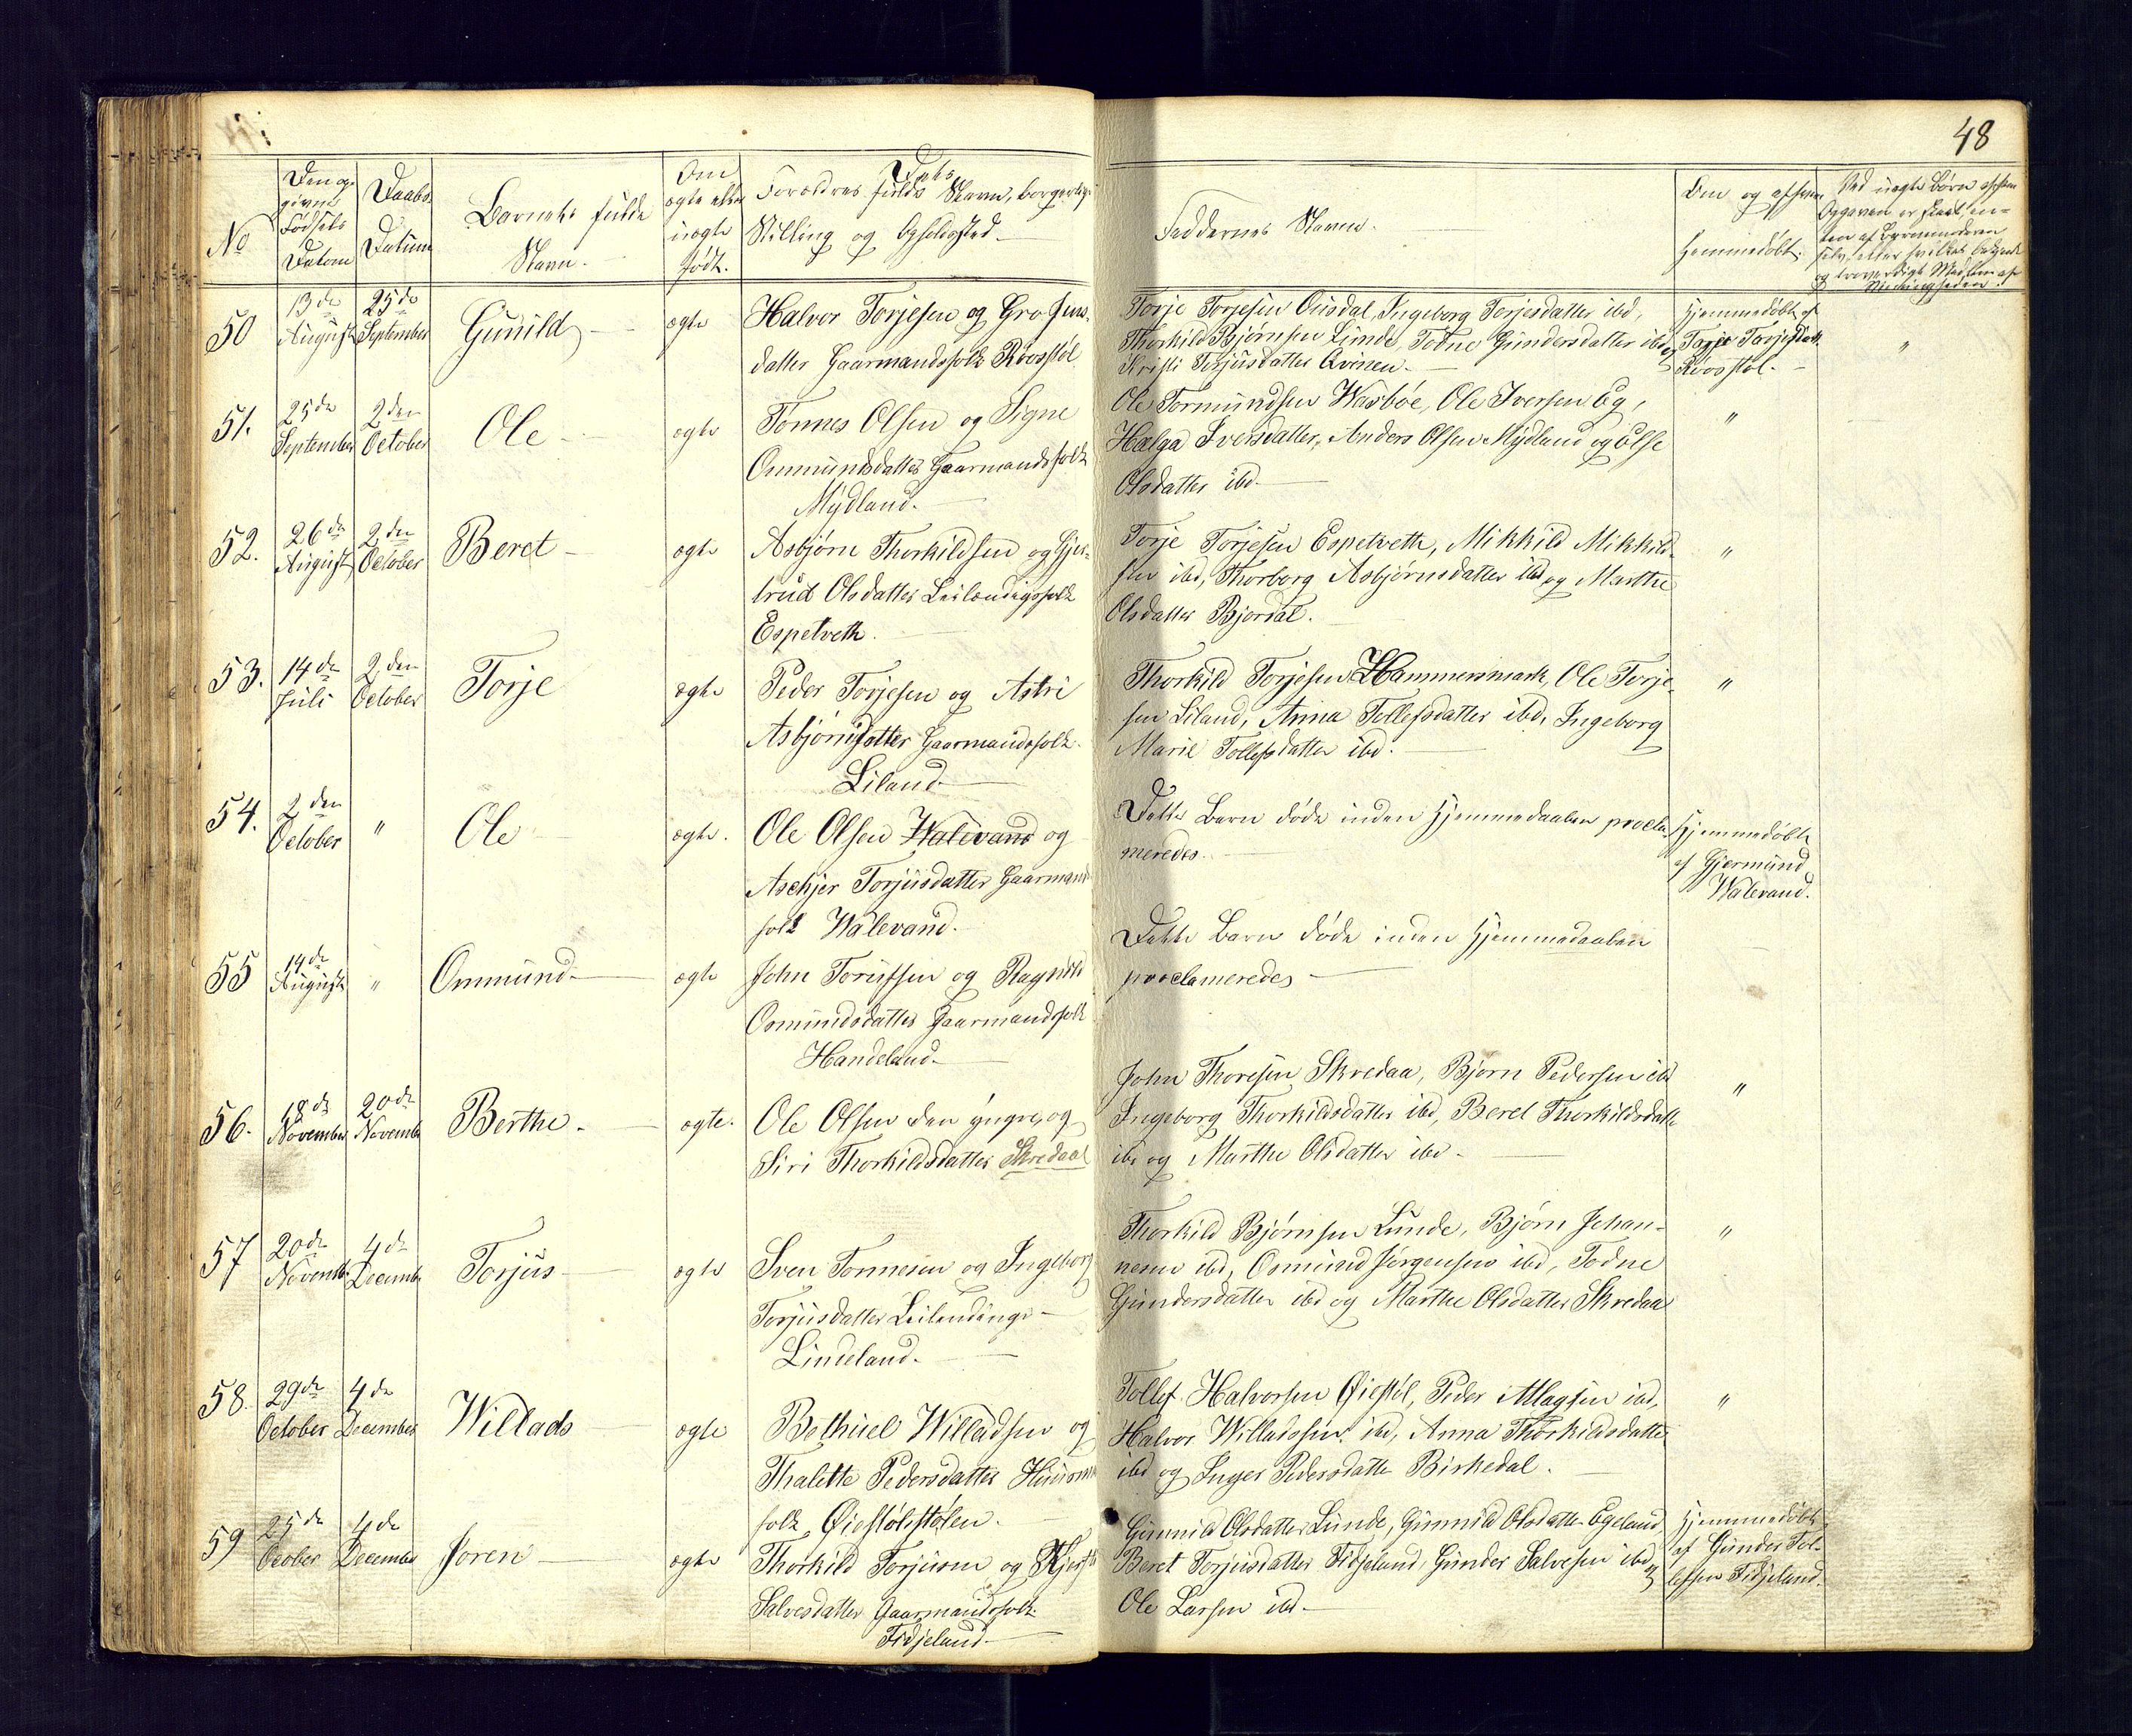 48
No
Den op
givne
Fødsels
Datum
Daabs
Datum
Barnets fulde
Navn.
Om
ægte eller
uægte
født.
Dets
Forældres fulde Navn, borgerlige
Stilling og Opholdsted.
Faddernes Navne.
Om og af hvem
hjemmedøbt.
Ved uægte Børn af hvem
Opgaven er skeet, en-
ten af Barnemoderen
selv, eller hvilket bekjendt
og troværdigt Medlem af
Menigheden.
50
13de
August
25de
September
Gunild
ægte
Halvor Torjesen og Gro Jens-
datter Gaarmandsfolk Roosstøl
Torje Torjesen Ousdal, Ingeborg Torjesdatter ibd,
Thorkild Bjørnsen Lunde, Todne Gundersdatter ibd og
Kristi Torjusdatter Qvinen.
Hjemmedøbt af
Torjer Torjesdatt.
Roosstøl.
"
51.
25de
September
2den
October
Ole
ægte
Tønnes Olsen og Signe
Ommundsdatter Gaarmandsfolk
Mydland.
Ole Tormundsen Wasbøe, Ole Iversen Eg,
Helga Iversdatter, Anders Olsen Mydland og Else
Olsdatter ibd
"
52.
26de
August
2den
October
Beret
ægte
Asbjørn Thorkildsen og Gjer-
trud Olsdatter Leilændingsfolk
Espetveth.
Torje Torjesen Espetveth, Mikkild Mikkild-
sen ibd, Thorborg Asbjørnsdatter ibd og Marthe
Olsdatter Bjordal.
"
53.
14de
Juli
2den
October
Torje
ægte
Peder Torjesen og Astri
Asbjørnsdatter Gaarmandsfolk
Liland
Thorkild Torjesen Hammersmark, Ole Torje-
sen Liland, Anna Tollefsdatter ibd, Ingeborg
Marie Tollefsdatter ibd.
"
54.
2den
October
"
Ole
ægte.
Ole Olsen Walevand og
Aschjer Torjusdatter Gaarmand
folk Walevand.
Dette Barn døde inden Hjemmedaaben procla-
meredes.
Hjemmedøbt
af Gjermund
Walevand.
55
14de
August
"
Ommund
ægte
John Torusen og Ragnild
Osmundsdatter Gaarmandsfolk
Handeland
Dette Barn døde inden Hjemmedaaben
proclameredes
56.
18de
November
20de
Novemb
Berthe.
ægte.
Ole Olsen den yngre, og
Siri Thorkildsdatter Skredaa
John Thoresen Skredaa, Bjørn Pedersen ibd
Ingeborg Thorkildsdatter ibd, Beret Thorkildsdatt
ibd og Marthe Olsdatter ibd
"
57
20de
Novemb.
4de
Decemb
Torjus
ægte
Sven Tønnesen og Ingeborg
Torjusdatter Leilendings-
Lindeland.
Thorkild Bjørnsen Lunde, Bjørn Johan-
nesen ibd, Osmund Jørgensen ibd, Todne
Gundersdatter ibd og Marthe Olsdatter Skredaa
"
58.
29de
October
4de
December
Willads
ægte
Bethuel Willadsen og
Thalette Pedersdatter Huusmn
folk Øiestølstølen.
Tollef Halvorsen Øiestøl, Peder Atlagsen ibd,
Halvor Willadssen ibd, Anna Thorkildsdatter
ibd og Inger Pedersdatte Birkedal.
"
59
25de
Ocober
4de
Decembe
Joren
ægte
Thorkild Torjusen og Kjersti
Salvesdatter Gaarmandsfolk
Fidjeland
Gunnild Olsdatter Lunde, Gunnild Olsdatte Egeland,
Beret Torjusdatter Fidjeland, Gunder Salvesen ibd og
Ole Larsen ibd
Hjemmedøbt
af Gunder Tol-
lefsen Fidjeland.